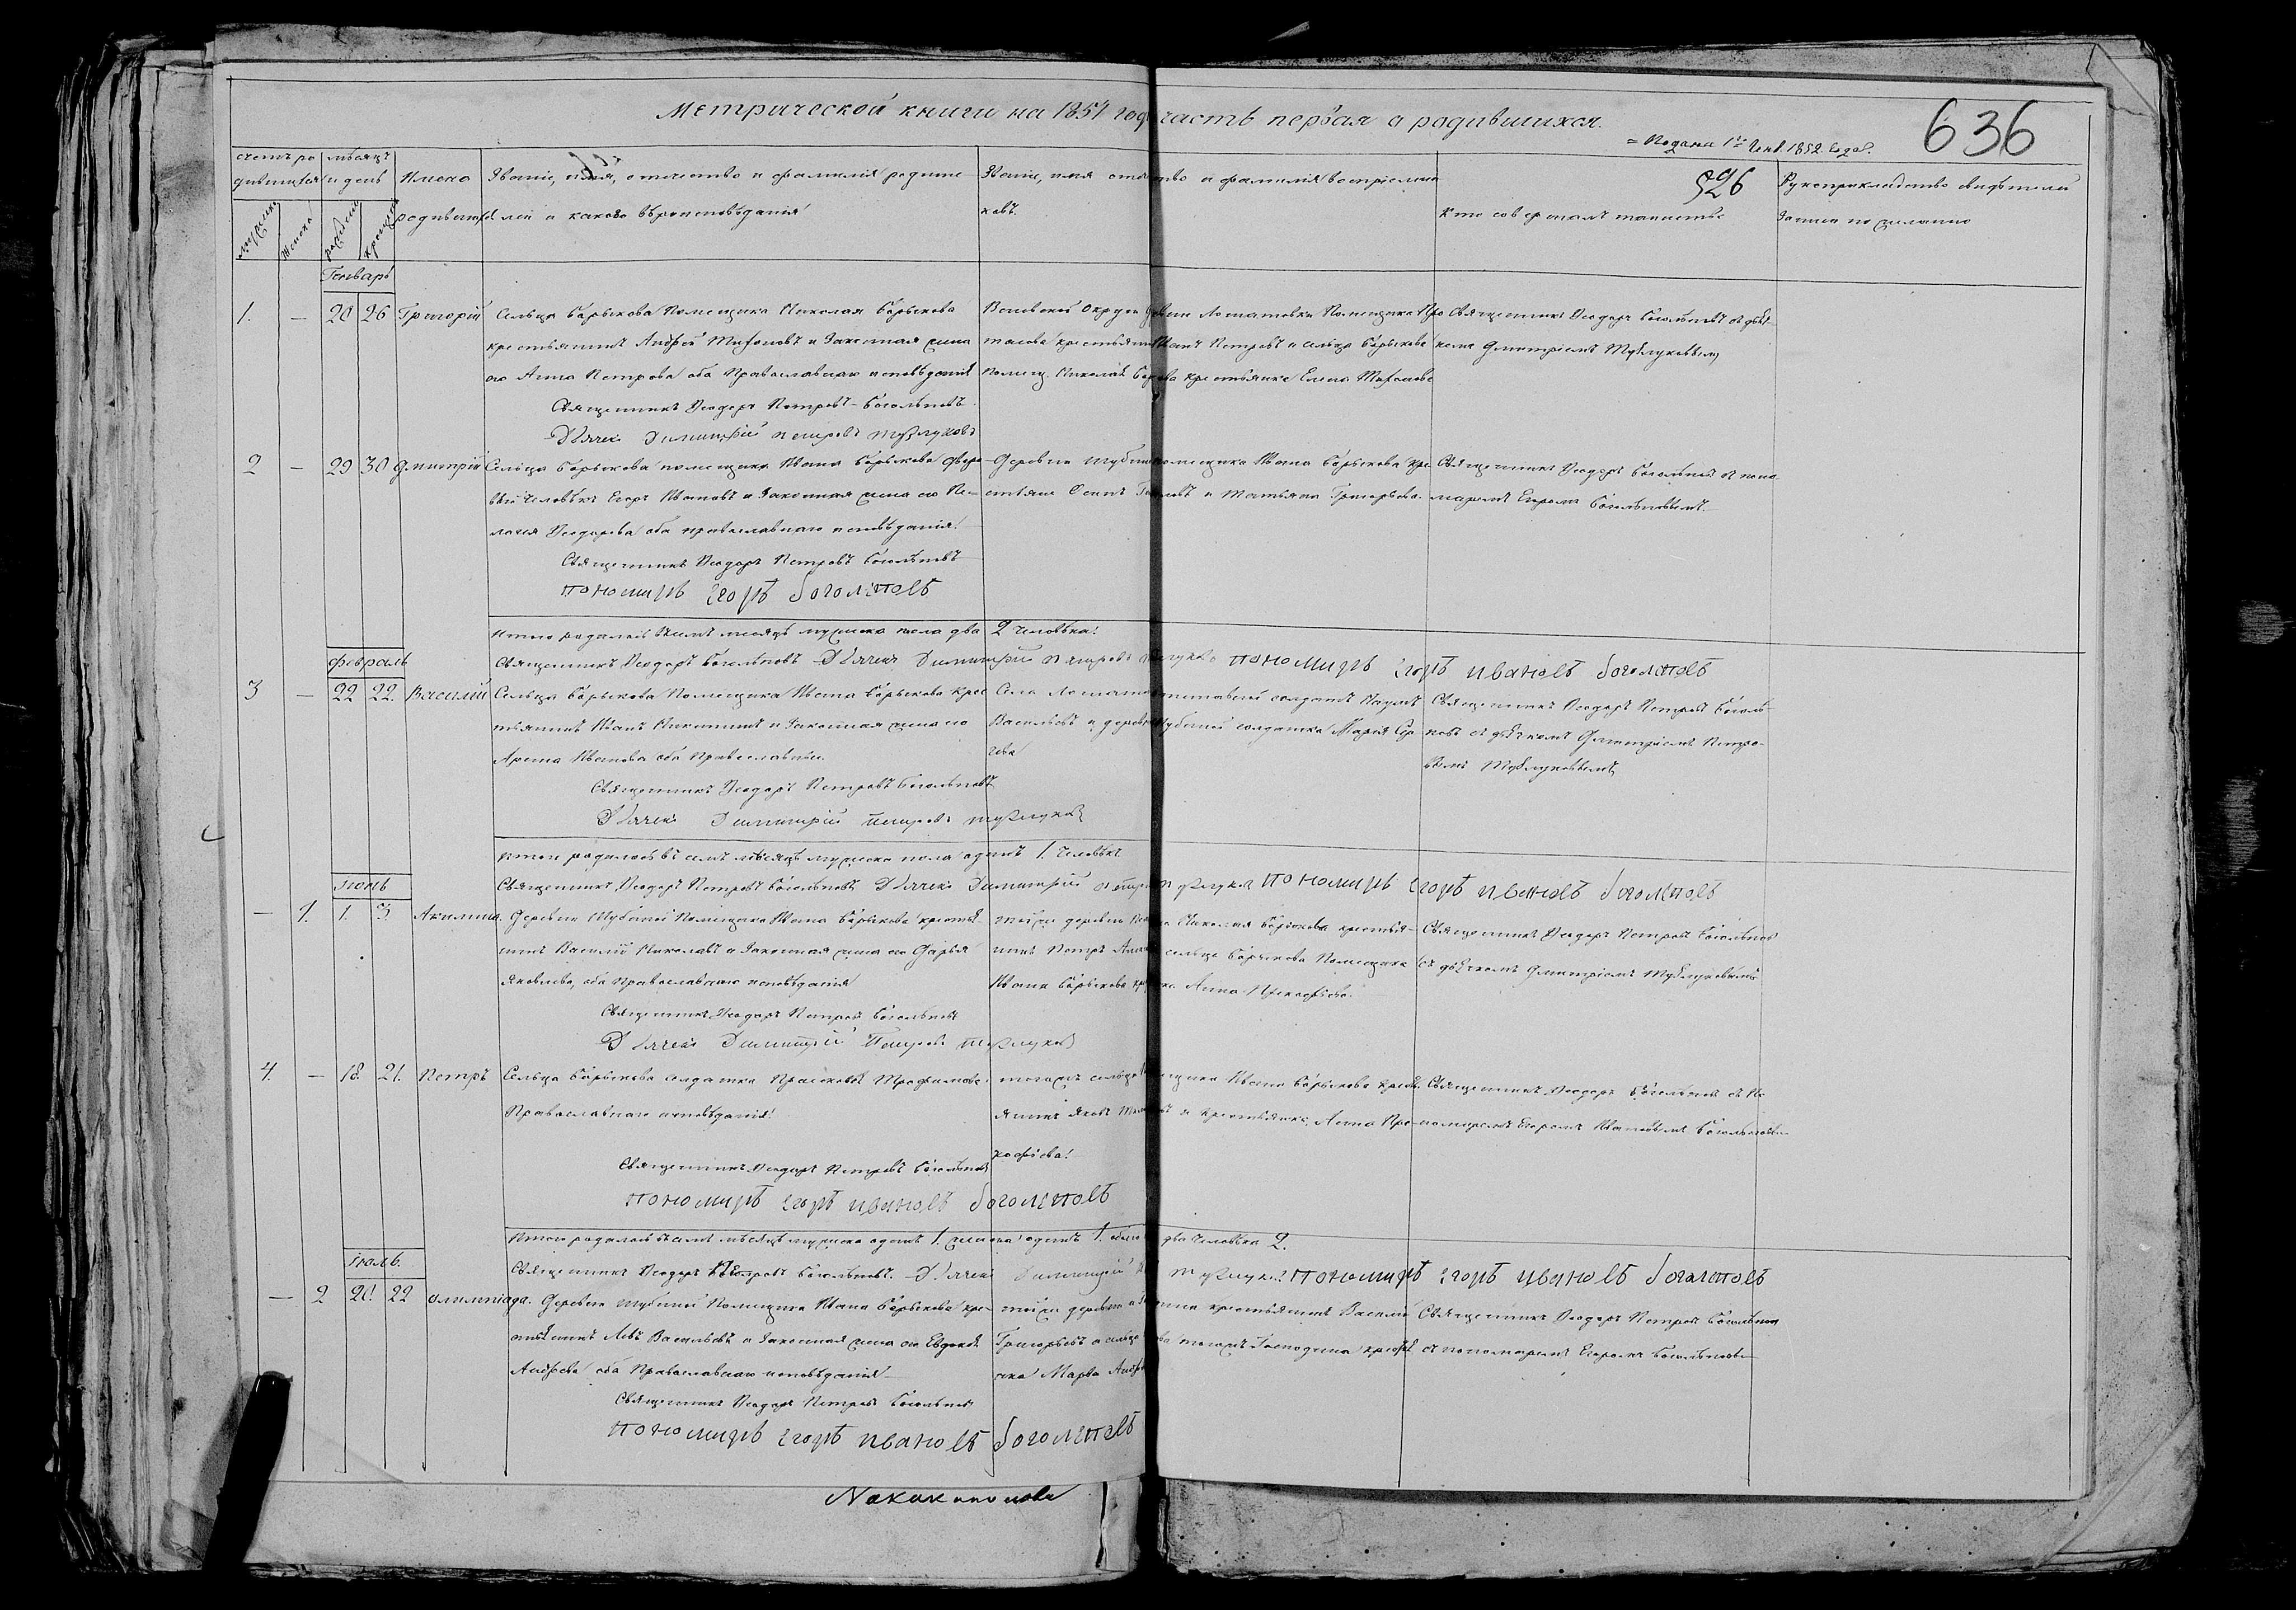 Метрической книги на 1851 год часть первая о родившихся.
= Подана 1го Генв. 1852. года.
636
526
счетъ ро
дившихся
мѣсяцъ
и день
Имена
родившихся
Званіе, имя, отчество и фамилія родите
лей и какова вѣроисповѣданія
Званіе, имя отчество и фамилія воспріемни
ковъ.
кто совершалъ таинство
Рукоприкладство свидѣтелей
записи по желанію
мужеска
женска
рожденія
крещенія
Генварь
1. — 20 26 Григорій
Сельца Борыкова Помещика Николая Борыкова
крестьянинъ Андрей Тихоновъ и Законная жена
его Анна Петрова оба Православнаго исповѣданія
Священникъ Ѳеодоръ Петровъ Боголѣповъ
Дьячекъ Димитрій Петровъ
округи Помещика
крестьянинъ Иванъ Петровъ и сельца Борыкова
помещ. Николая крестьянка Елена Тихонова
Священникъ Ѳеодоръ Боголѣповъ съ дьяч-
комъ Дмитріемъ
2 — 29 30 Дмитрій
Сельца Борыкова помещика Ивана Борыкова дворо
вый человѣкъ Егоръ Ивановъ и Законная жена его Пе-
лагея Ѳеодорова оба православнаго исповѣданія
Священникъ Ѳеодоръ Петровъ Боголѣповъ
пономарь Егоръ Боголеповъ
Деревни помещика Ивана Борыкова кре
стьяне Осипъ и Татьяна Григорьева.
Священникъ Ѳеодоръ Боголѣповъ съ поно
маремъ Егоромъ Боголѣповымъ
Итого родилось въ семъ месяцѣ мужеска пола два 2 человѣка
Священникъ Ѳеодоръ Боголѣповъ Дьячекъ Димитрій Петровъ пономарь Егоръ Ивановъ Боголеповъ
февраль
3 — 22 22. Василій
Сельца Борыкова Помещика Ивана Борыкова крес
тьянинъ Иванъ Никитинъ и Законная жена его
Арина Иванова оба Православные
Священникъ Ѳеодоръ Петровъ Боголѣповъ
Дьячекъ Димитрій Петровъ
Села солдатъ Наумъ
Васильевъ и деревни солдатка Марія Сер
геева
Священникъ Ѳеодоръ Петровъ Боголѣ-
повъ съ дьячкомъ Дмитріемъ Петро-
вымъ
Итого родилось въ семъ мѣсяцѣ мужеска пола одинъ 1. человѣкъ
Священникъ Ѳеодоръ Петровъ Боголѣповъ Дьячекъ Димитрій пономарь Егоръ Ивановъ Боголеповъ
Іюнь
— 1. 1. 3. Акилина.
Деревни Помещика Ивана Борыкова крестья-
нинъ Василій Николаевъ и Законная жена его Дарья
Яковлева, оба Православнаго исповѣданія
Священникъ Ѳеодоръ Петровъ Боголѣповъ
Дьячекъ Димитрій Петровъ
тойже деревни Николая Борыкова крестья-
нинъ Петръ сельца Борыкова Помещика
Ивана Борыкова Анна Прокофьева.
Священникъ Ѳеодоръ Петровъ Боголѣповъ
съ дьячкомъ Дмитріемъ
4. — 18. 21. Петръ
Сельца Борыкова солдатка Прасковья Трофимова
Православнаго исповѣданія
Священникъ Ѳеодоръ Петровъ Боголѣповъ
пономарь Егоръ Ивановъ Боголеповъ
тогожъ сельца Ивана Борыкова кресть
янинъ Яковъ и крестьянка, Анна Про
кофьева
Священникъ Ѳеодоръ Боголѣповъ съ по
номаремъ Егоромъ Ивановымъ Боголѣповы-
Итого родилось въ семъ мѣсяцѣ мужеска одинъ 1. женска одинъ 1. обоего два человѣка 2.
Священникъ Ѳеодоръ Петровъ Боголѣповъ. Дьячекъ Димитрій пономарь Егоръ Ивановъ Боголеповъ
Іюль.
— 2 20. 22 Олимпіада.
Деревни Помещика Ивана Борыкова кре-
стьянинъ Левъ Васильевъ и Законная жена его Евдокія
Андреева оба Православнаго исповѣданія
Священникъ Ѳеодоръ Петровъ Боголѣповъ
пономарь Егоръ Ивановъ Боголеповъ
тойже деревни крестьянинъ Василій
Григорьевъ и сельца тогожъ Господина кресть
янка Марѳа
Священникъ Ѳеодоръ Петровъ Боголѣповъ
съ пономаремъ Егоромъ Боголѣповы-